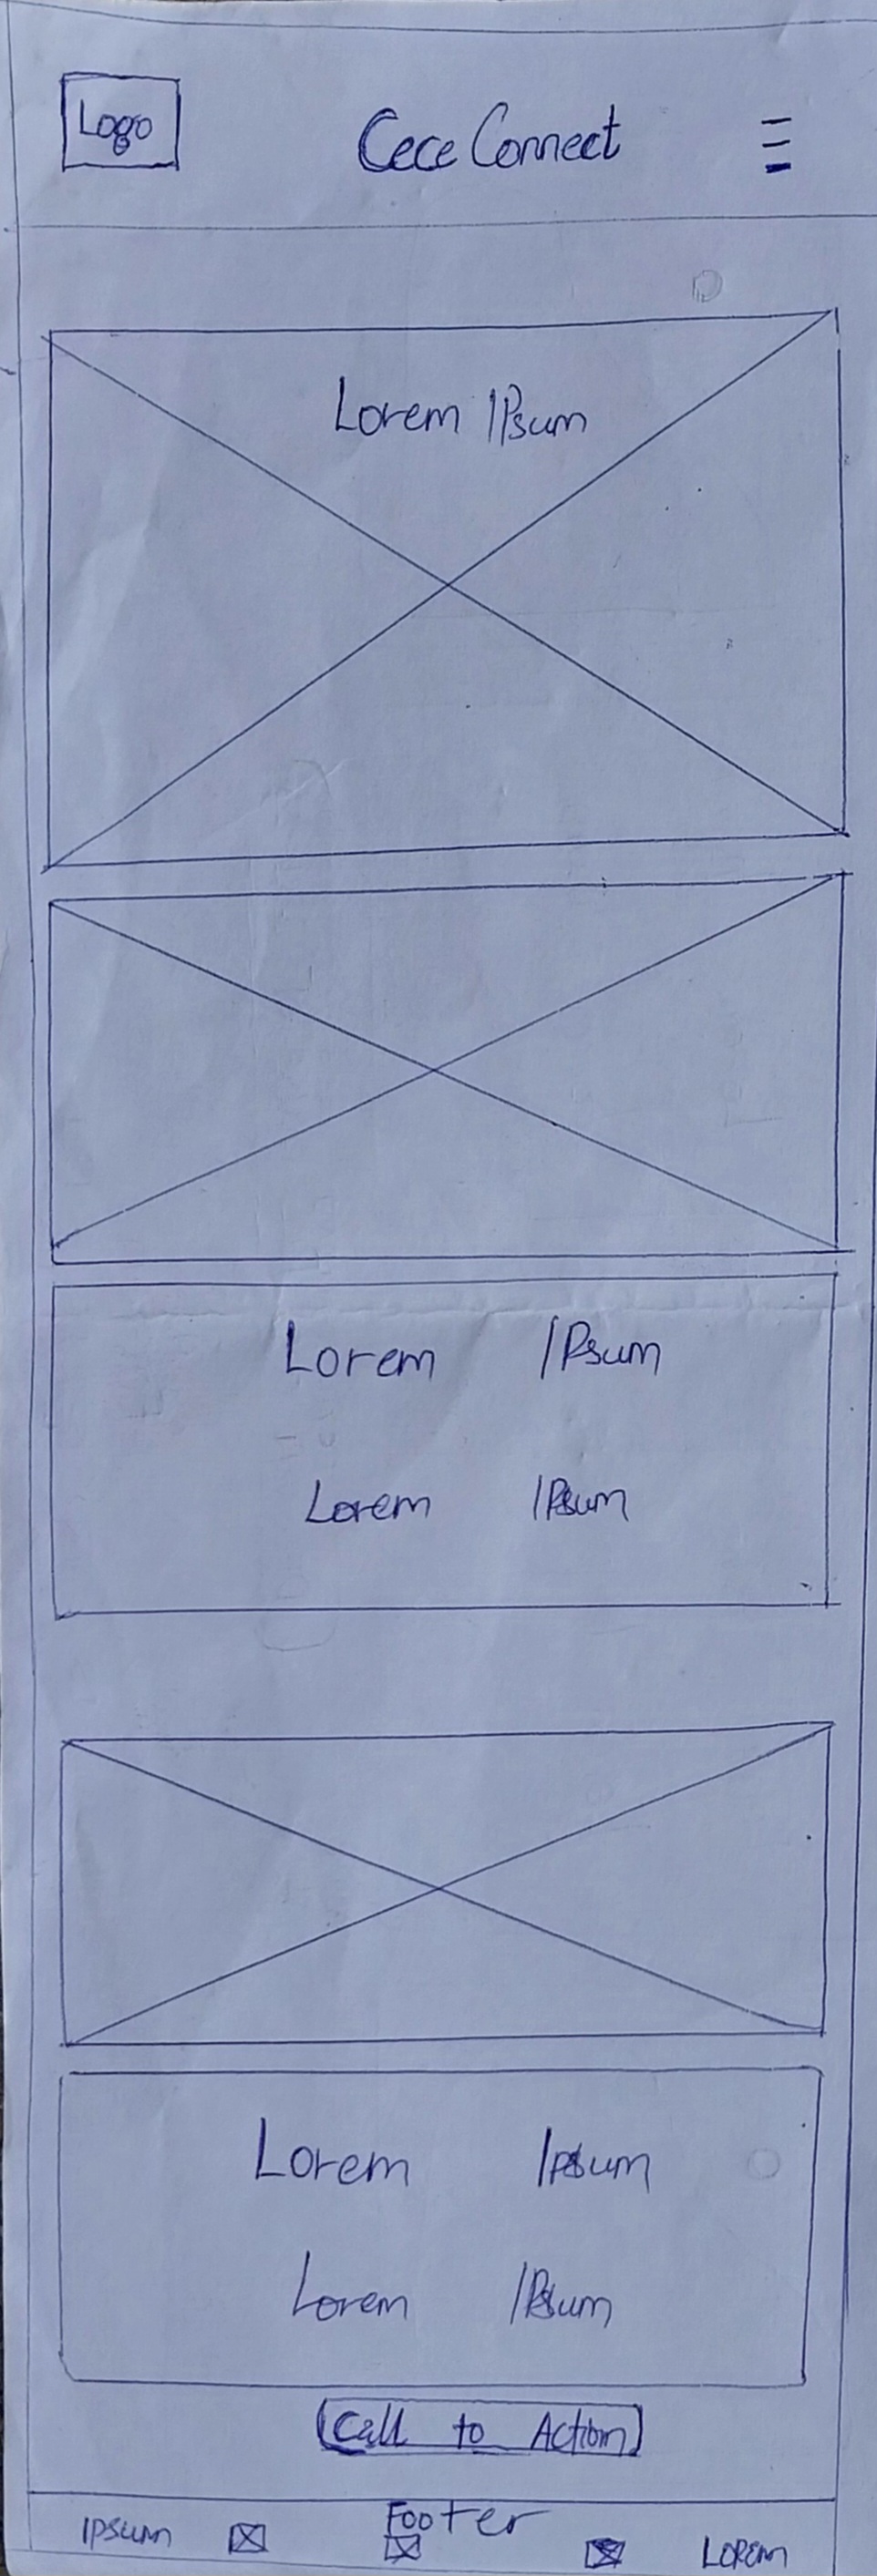 Logo
Cece Connect
Lorem IPsum
Lorem IPsum
Lorem IPsum
Lorem Ipsum
Lorem IPsum
Call to Action
Footer
IPSUM LOREM